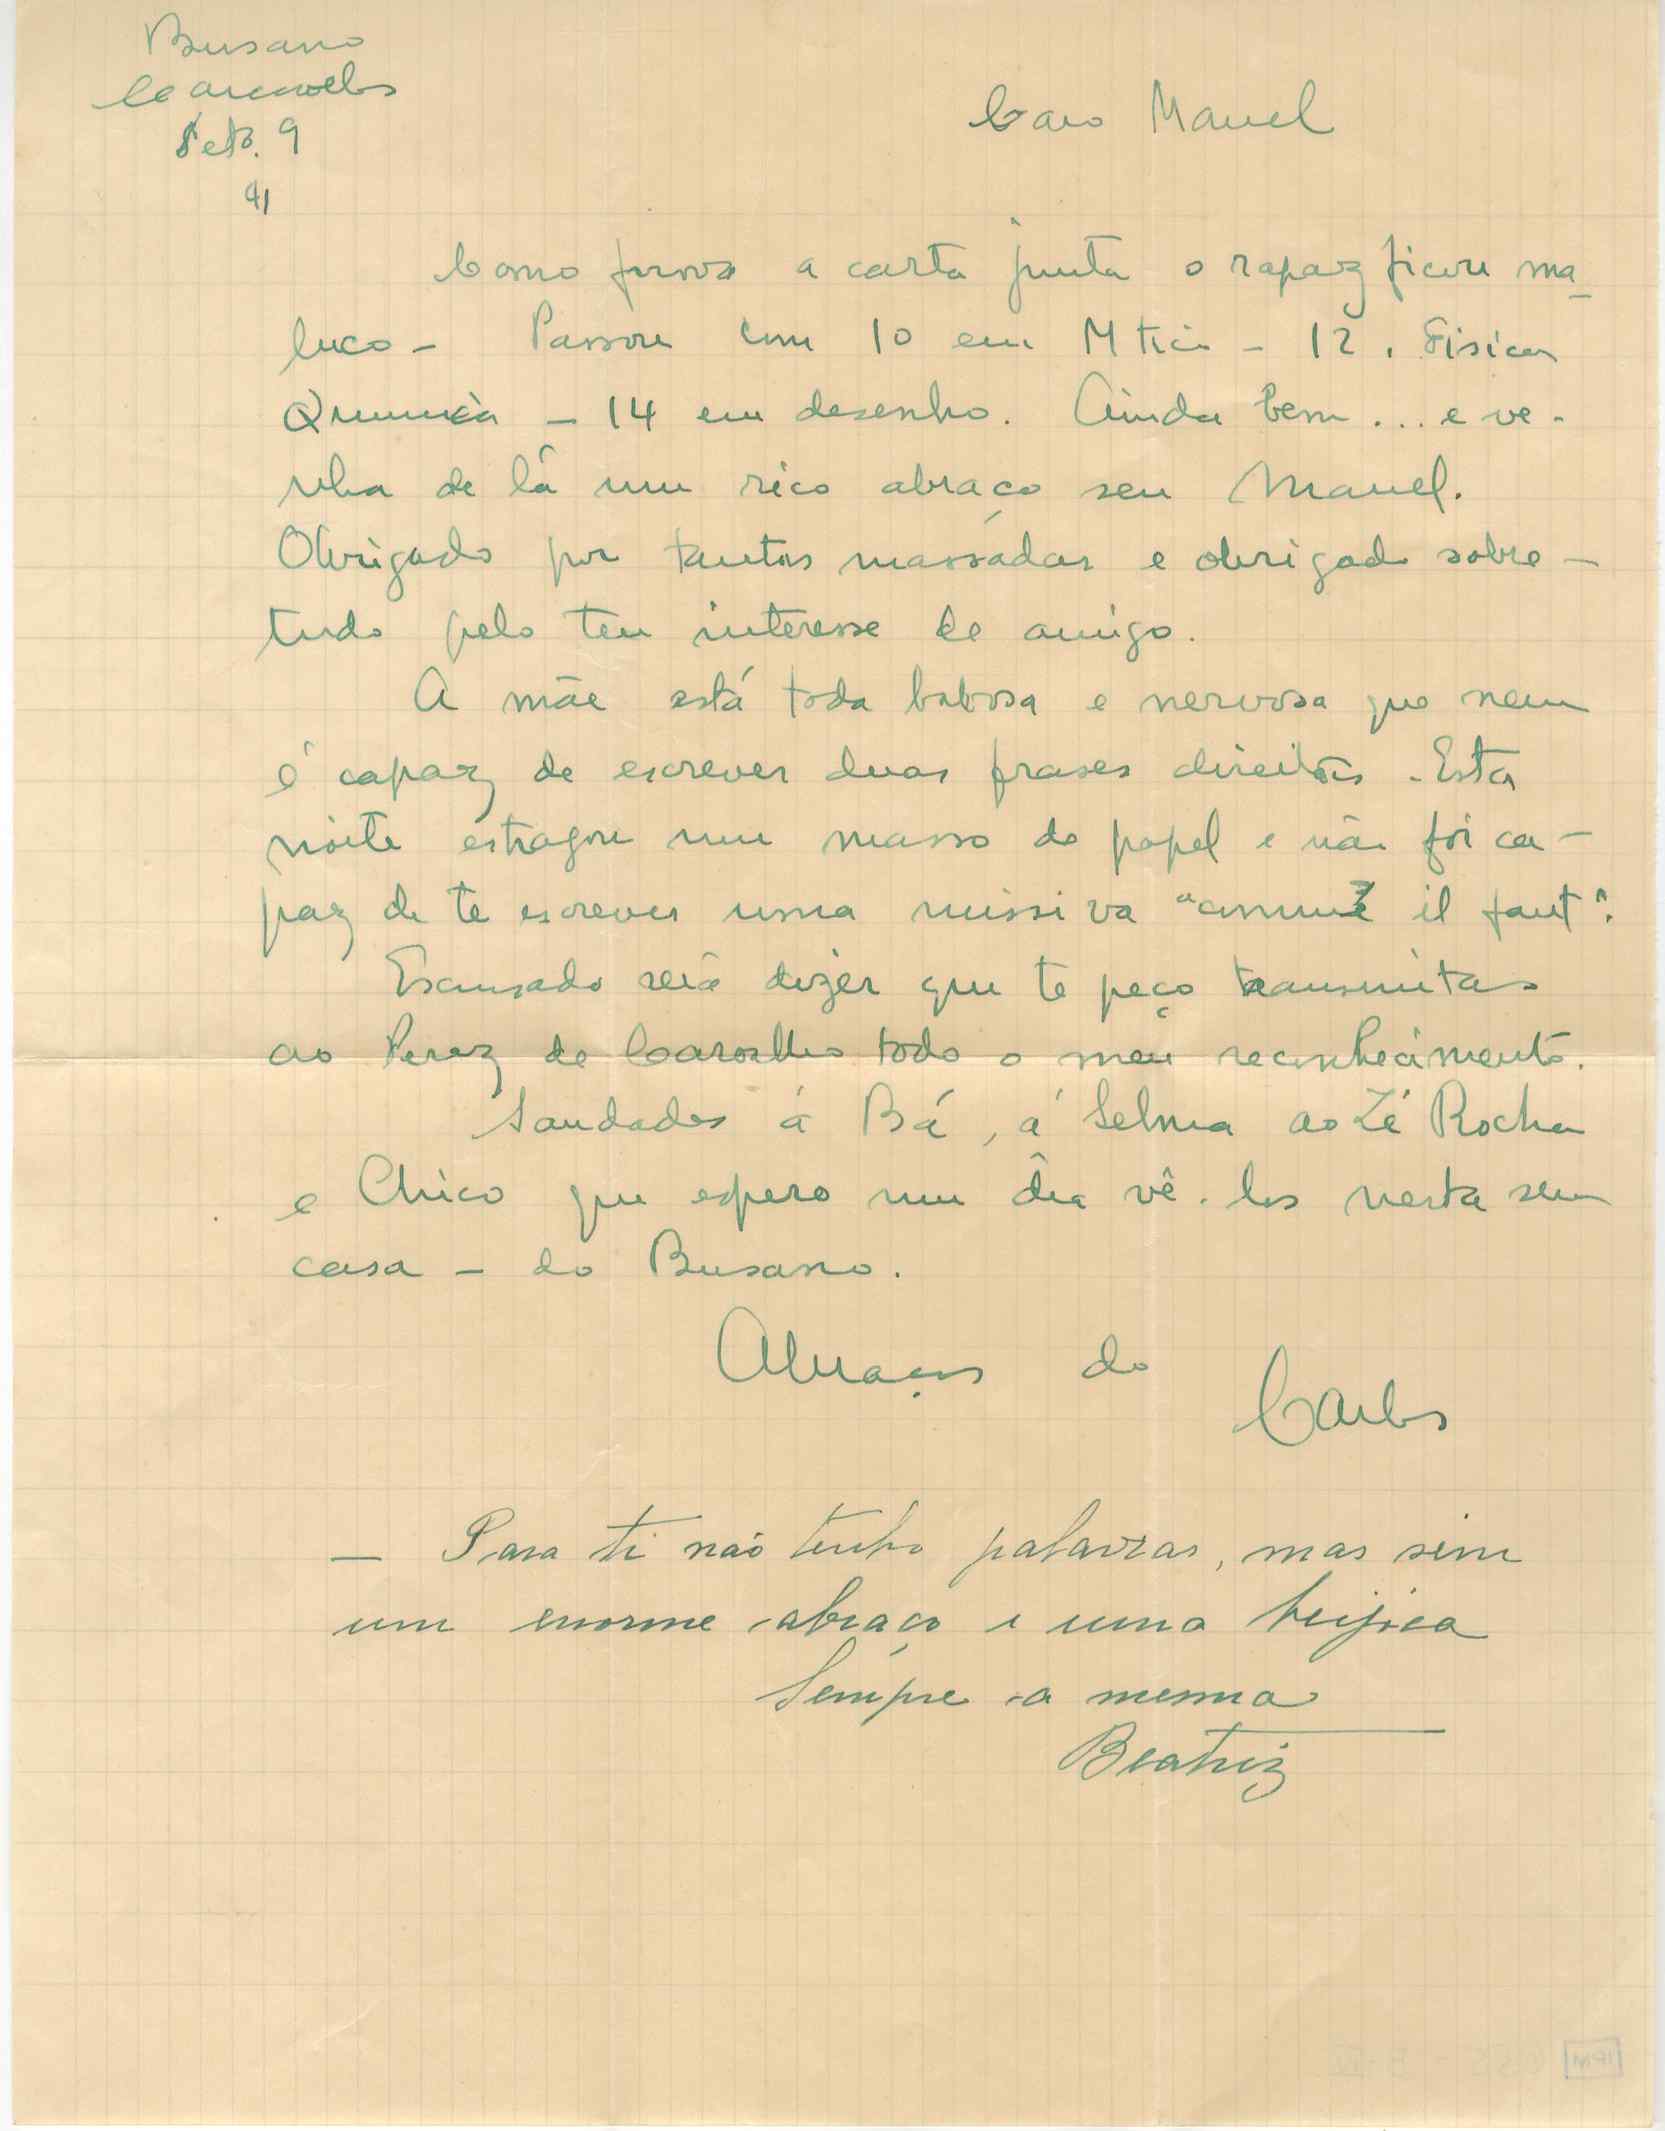 Busano
Carcavelos
Setb. 9
41
Caro Manel
Como prova a carta junta o rapaz ficou ma-
luco - Passou com 10 em Mtica - 12. Fisica
Quimica - 14 em desenho. Ainda bem... e ve-
nha de lá um rico abraço seu Manel.
Obrigado por tantas massádas e obrigado sobre-
tudo pelo teu interesse de amigo.
A mãe está toda babosa e nervosa que nem
é capaz de escrever duas frases direitas - Esta
noite estragou um masso de papel e não foi ca-
paz de te escrever uma missiva "comme il faut".
Escusado será dizer que te peço transmitas
ao Perez de Carvalho todo o meu reconhecimento.
Saudades á Bá, á Selma ao Zé Rocha
e Chico que espero um dia vê-los nesta sua
casa - do Busano.
Abraços do
Carlos
- Para ti não tenho palavras, mas sim
um enorme abraço e uma beijoca
Sempre a mesma
Beatriz